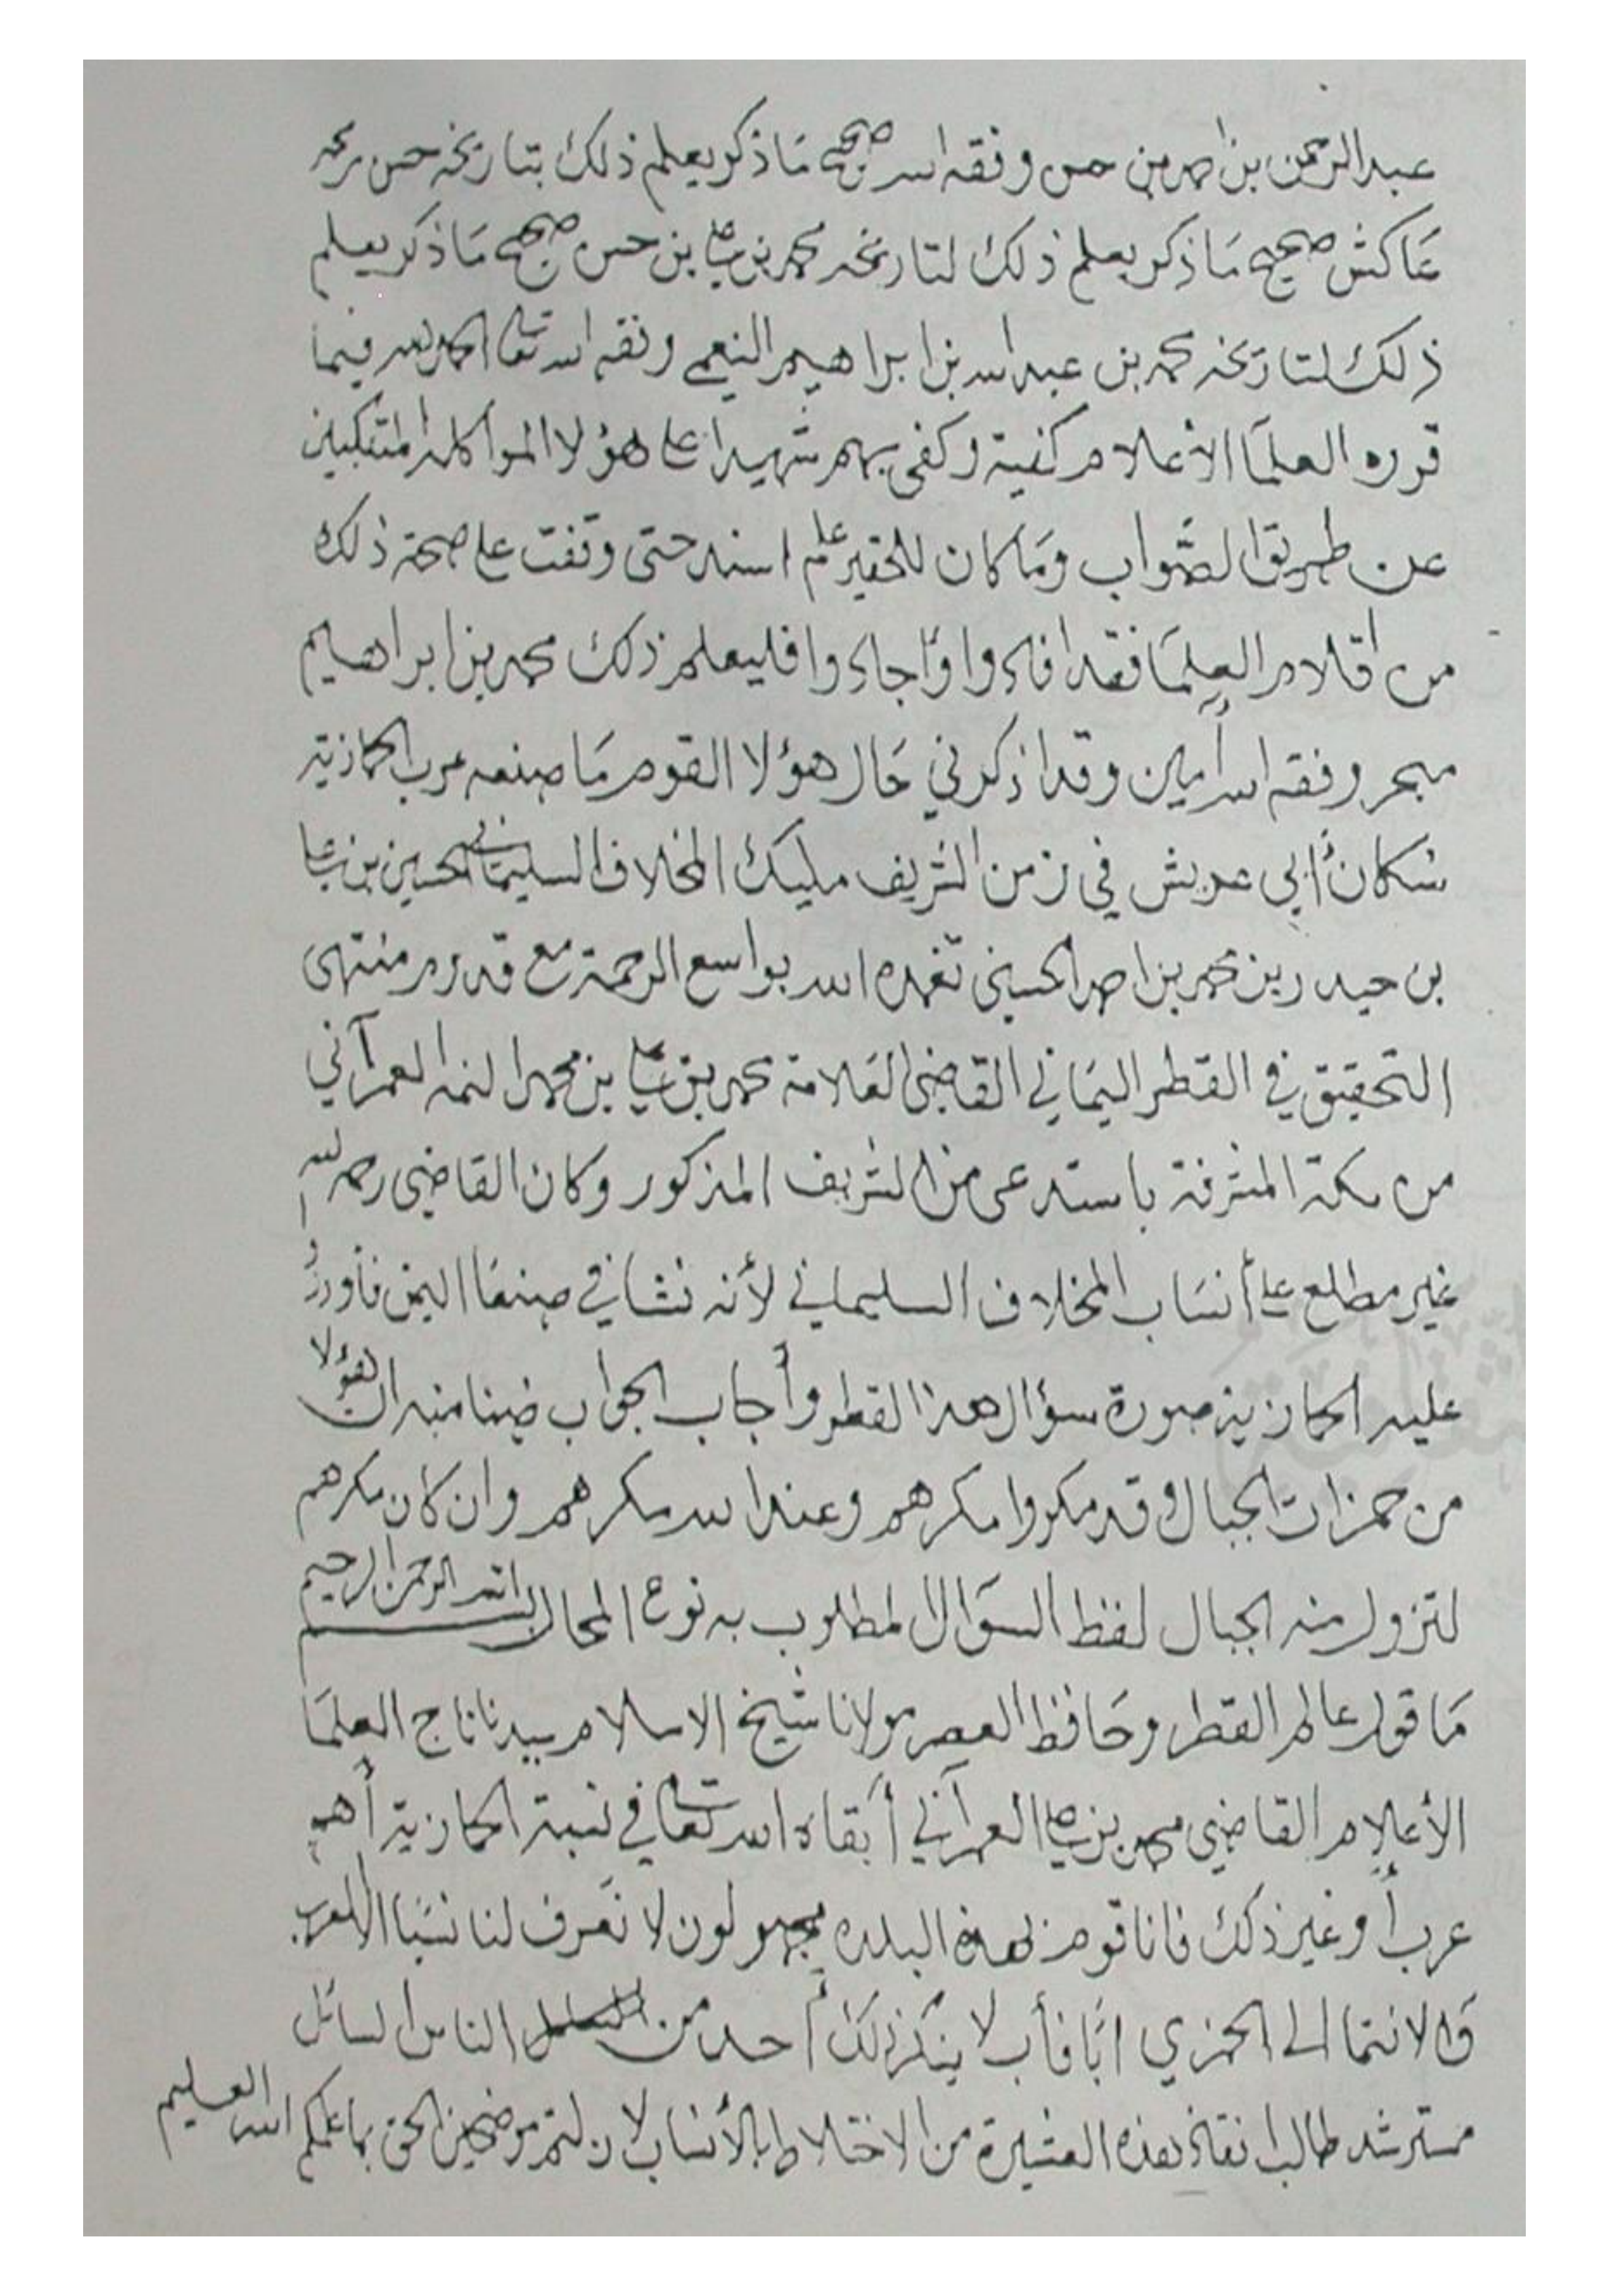 عبد الرحمن بن احمد بن حسن وفقه الله صحيح مَا ذكر يعلم ذلك بتاريخه حسن بن محمد
عَاكش صحيح مَا ذكر يعلم ذلك لتاريخه محمد بن علي بن حسن صحيح مَا ذكر يعلم
ذلك لتاريخه محمد بن عبد الله بن ابراهيم النعمي وفقه الله تعالى الحمد لله فيما
قرره العلمَا الاعلام كفية وكفى بهم شهيدا على هؤلا المواكله المتنكبين
عن طريق الصَّواب ومَا كان للحقير علم اسند حتى وقفت على صحة ذلك
من اقلام العلمَا فقد افادوا وأجادوا فليعلم ذلك محمد بن ابراهيم
مبجر وفقه الله آمين وقد اذكرني حَال هؤلا القوم مَا صنعه عرب الحمازية
سكان أبي عريش في زمن الشريف مليك المخلاف السليماني الحسين بن علي
بن حيدر بن محمد بن احمد الحسيني تغمده الله بواسع الرحمة مع قدوم منتهى
التحقيق في القطر اليمَاني القاضي العَلامة محمد بن علي بن محمد العمرآني
من مكة المشرفة باستدعى من الشريف المذكور وكان القاضي رحمه الله
غير مطلع على أنسَاب المخلاف السليماني لأنه نشا في صنعَا اليمن فأورد
عليه الحمازية صورة سؤال هذا القطر وأجاب الجواب ضينا منه ان هؤلا
من حمزات الجبال وقد مكروا مكرهم وعند الله مكرهم وان كان مكرهم
لتزول منه الجبال لفظ السؤال المطلوب به نوع المحال بسم الله الرحمن الرحيم
مَا قول عالم القطر وحَافظ العصر مولانا شيخ الاسلام سيدنا تاج العلمَا
الأعلام القاضي محمد بن علي العمرآني أبقاه الله تعالى في نسبة الحمازية أهم
عرب أو غير ذلك فانا قوم بهذه البلده مجهولون لا نعَرف لنا نسَبا الا للعرب
والانتما الى الحمزي ابًا فأب لا ينكر ذلك أحد من الناس السائل
مسترشد طالب انقاذ هذه العشيرة من الاختلاط بالأنساب لا زلتم موضحين الحق بما علمكم الله العليم